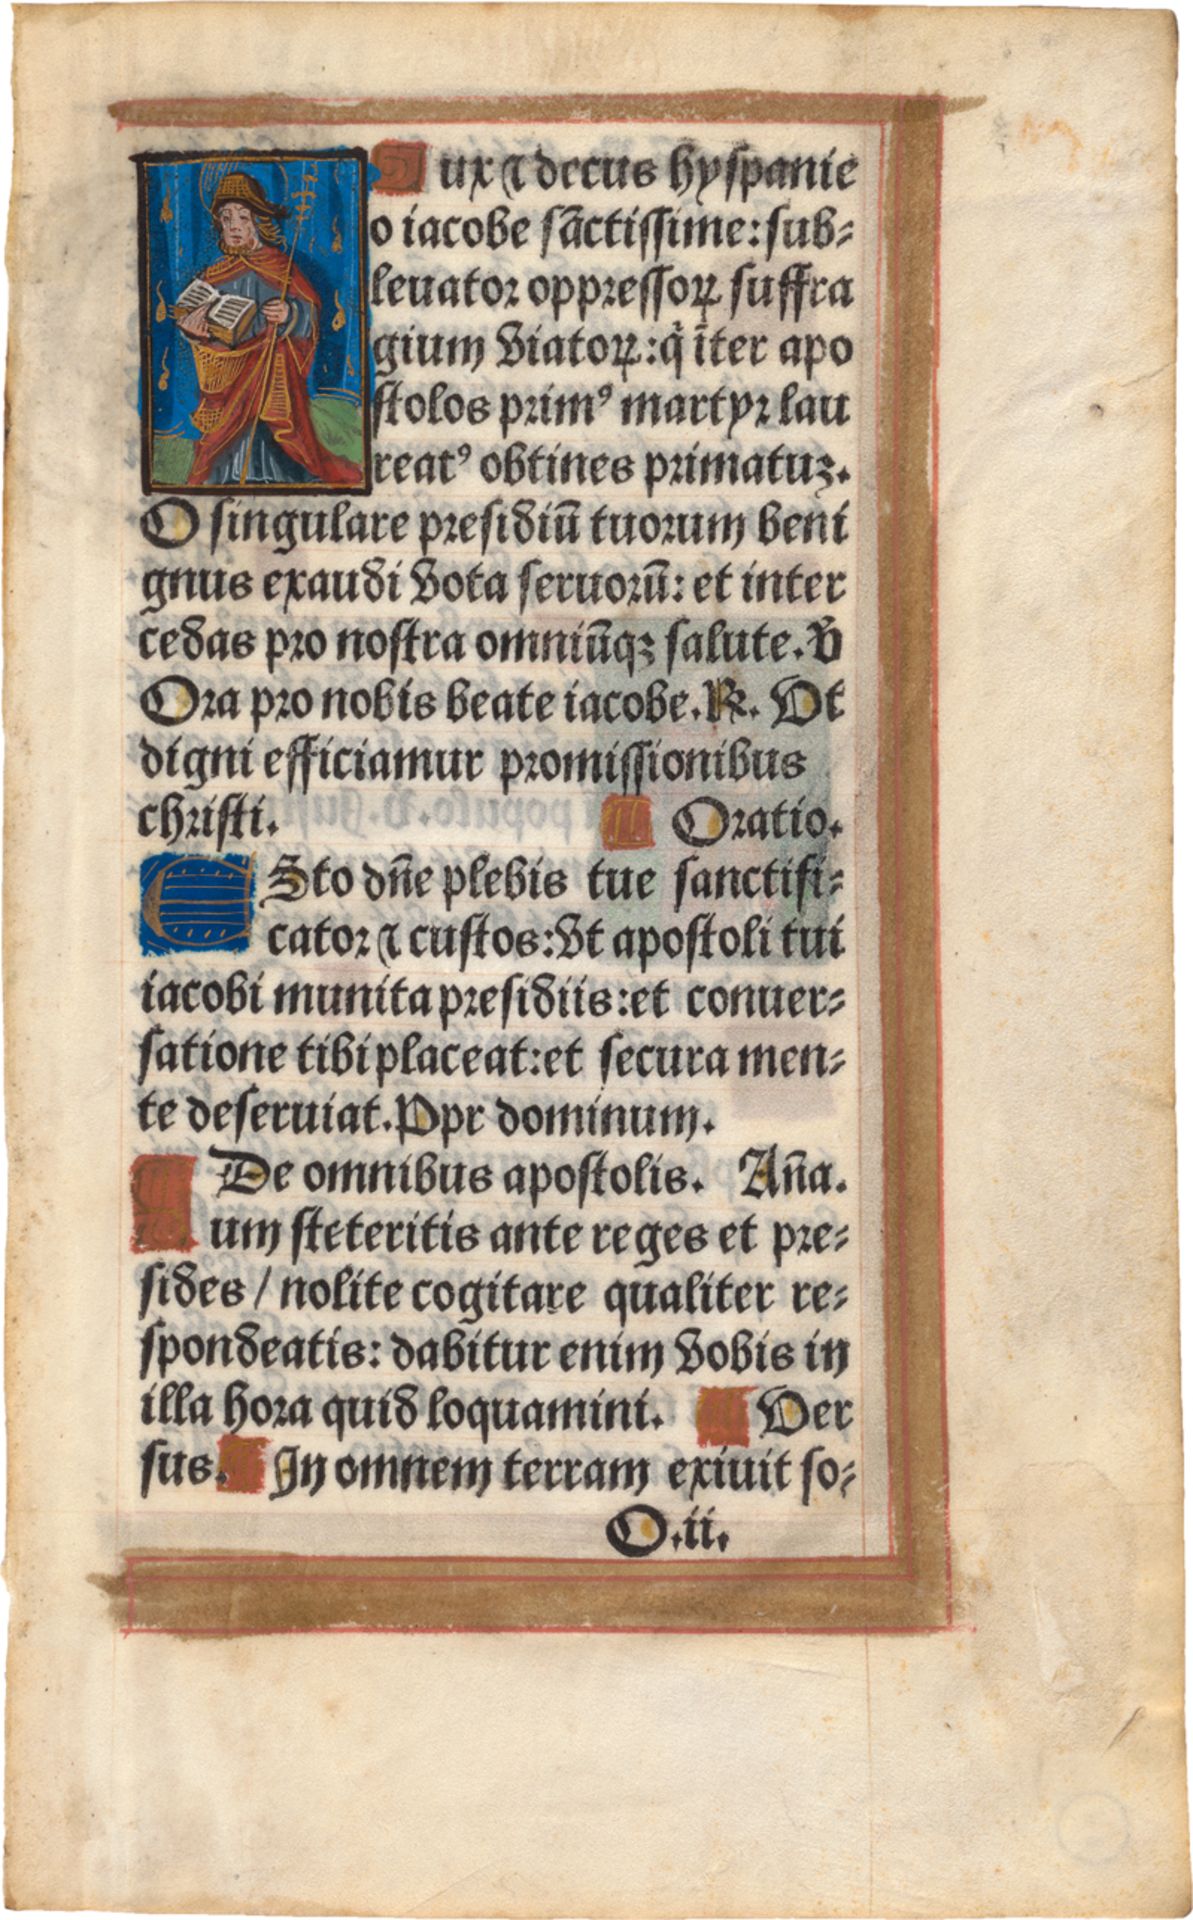 Lux ⁊ decus hyspanie
o iacobe sāctissime: sub⸗
leuator oppressoꝝ suffra
gium viatoꝝ: q̇ īter apo
stolos primꝰ martyr lau
reatꝰ obtines primatuz.
O singulare presidiū tuorum beni
gnus exaudi vota seruorū: et inter
cedas pro nostra omniūqꝫ salute. ℣
Ora pro nobis beate iacobe. ℟. Vt
digni efficiamur promissionibus
christi. ¶ Oratio.
ESto dn̄e plebis tue sanctifi⸗
cator ⁊ custos: vt apostoli tui
iacobi munita presidiis: et conuer⸗
satione tibi placeat: et secura men⸗
te deseruiat. Ppr dominum.
¶ De omnibus apostolis. An̄a.
Dum steteritis ante reges et pre⸗
sides / nolite cogitare qualiter re⸗
spondeatis: dabitur enim vobis in
illa hora quid loquamini. ¶ Ver
sus. ¶ In omnem terram exiuit so⸗
O.ii.